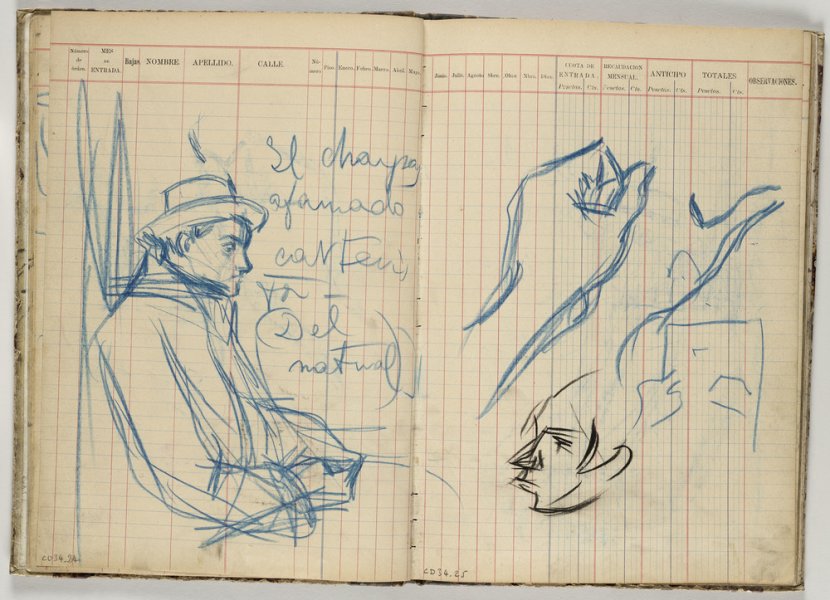 Número de orden.
MES DE ENTRADA.
Bajas.
NOMBRE
APELLIDO.
CALLE.
Número
Fbro.
Enero.
Febro.
Marzo.
Abril.
Mayo.
Junio.
Julio.
Agosto
Sbre.
Obre.
Nbre.
Dbre.
CUOTA DE ENTRADA.
Pesetas. Cts.
RECAUDACION MENSUAL.
Pesetas. Cts.
ANTICIPO
Pesetas. Cts.
TOTALES
Pesetas. Cts.
OBSERVACIONES.
El
afamado
(Del
natural)
CD34.24
CD34.25